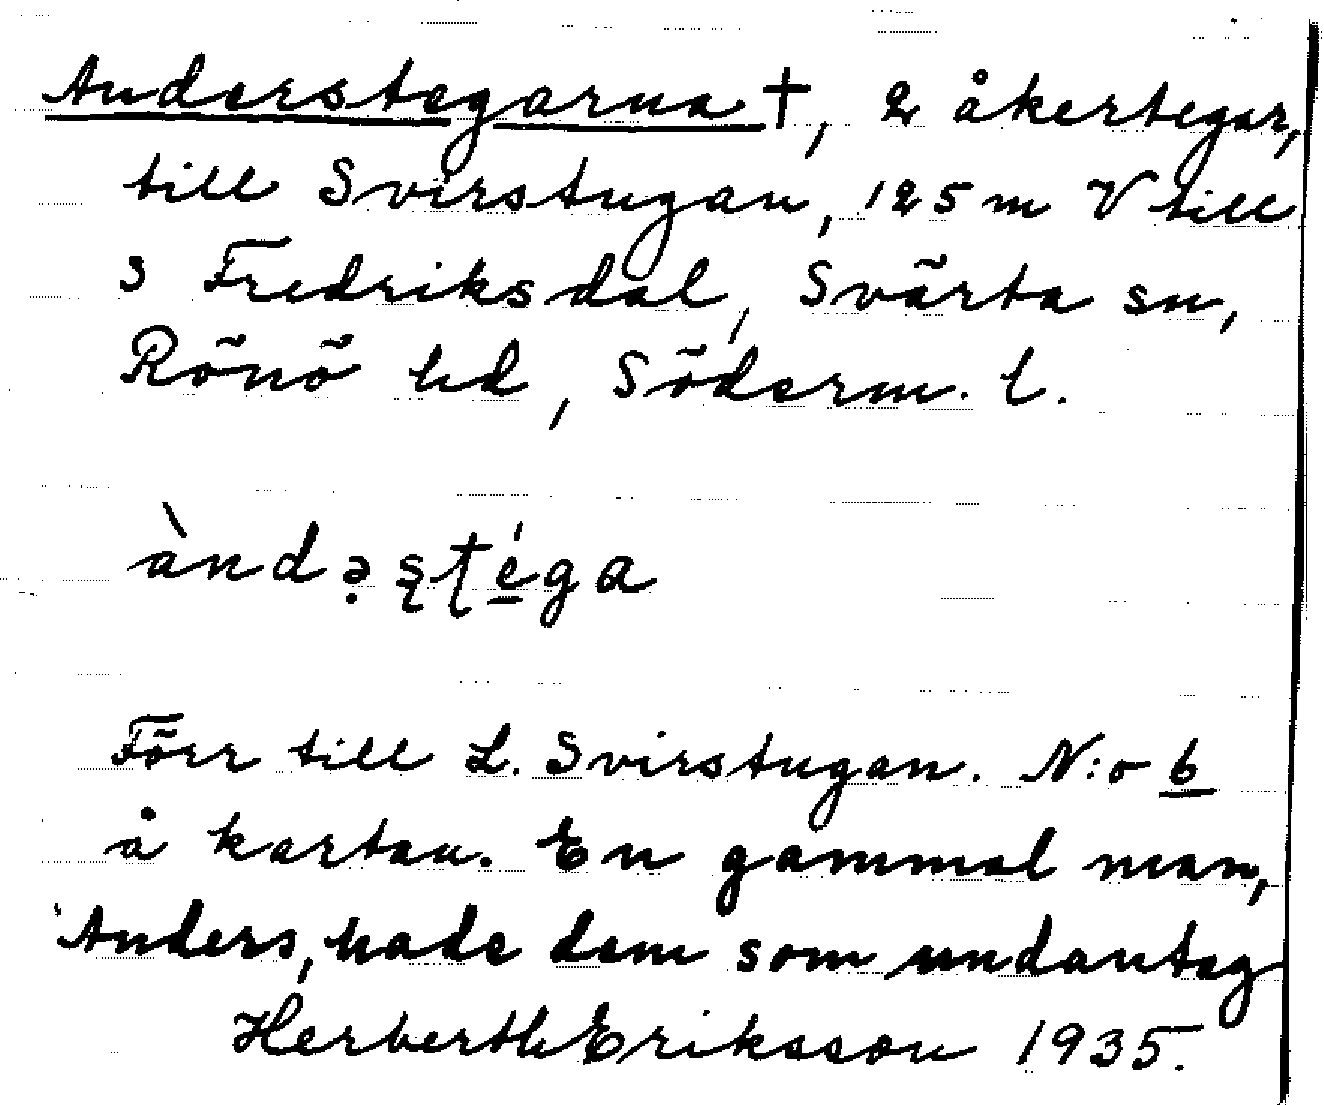 Anderstegarna †, 2 åkertegar,
till Svirstugan, 125 m V till
s Fredriksdal, Svärta sn,
Rönö hd, Söderm. l.
àndə̣ʂʈé̠ga
Förr till L. Svirstugan. N:o 6
å kartan. En gammal man,
Anders, hade dem som undantag
Herberth Eriksson 1935.